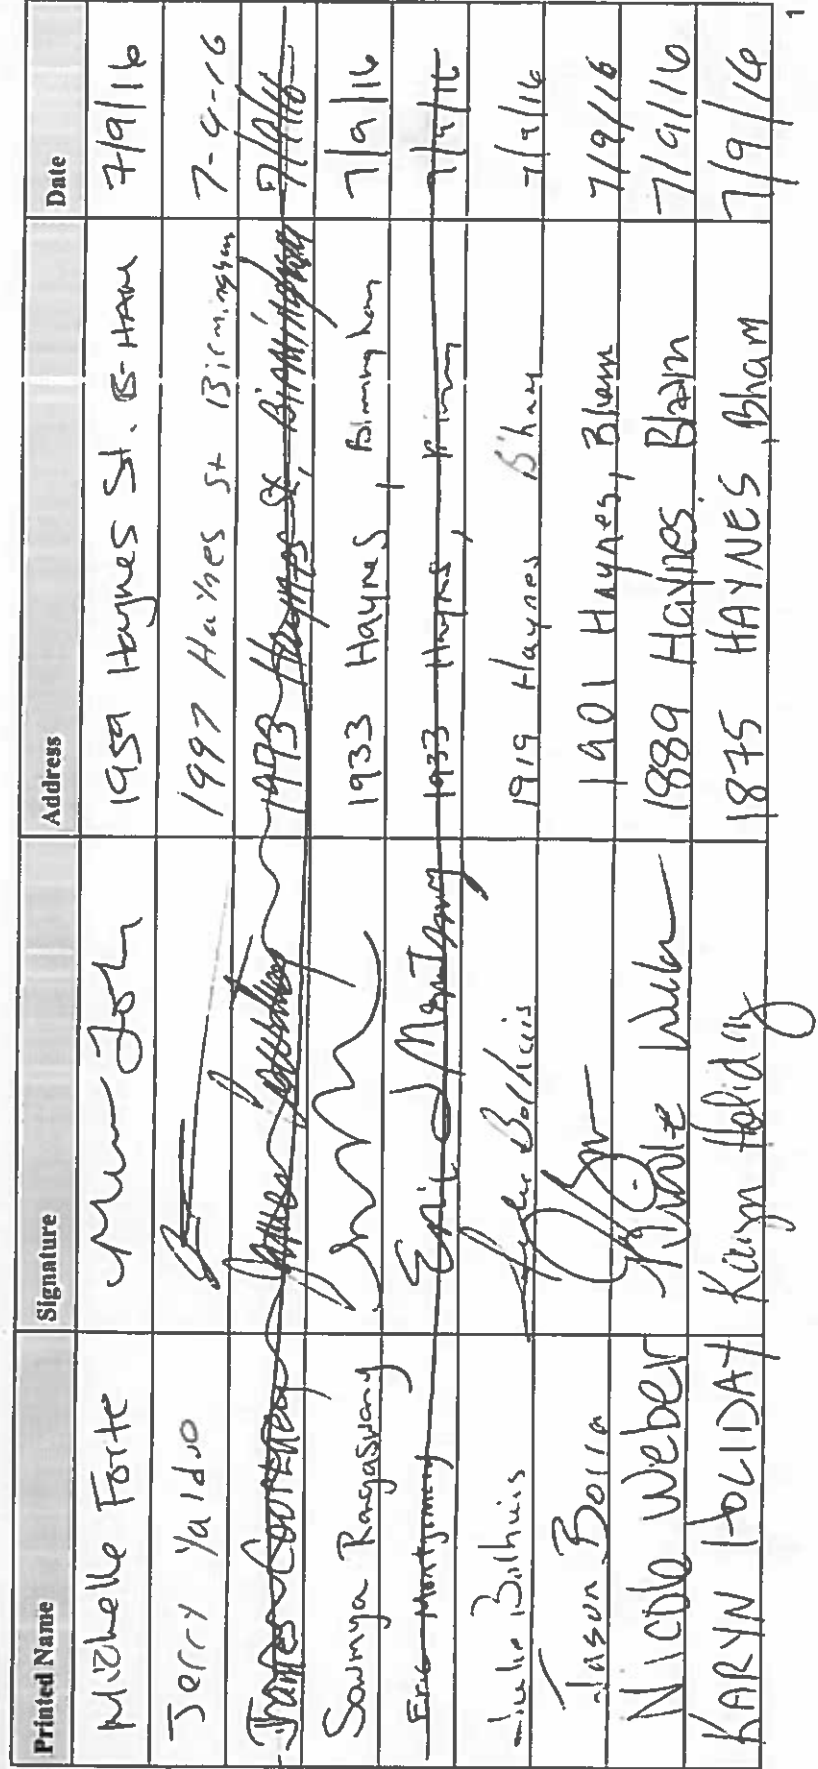 Printed Name Signature Address Date
Michelle Forte 1959 Haynes St. B-HAM 7/9/16
Jerry Yaldo 1997 Haynes St Birmingham 7-9-16
James 1973 Haynes St, Birmingham 7/9/16
Sowmya Rangaswamy 1933 Haynes, Birmingham 7/9/16
Eric Montgomery Eric J Montgomery 1933 Haynes, 7/9/16
Julie Bolhuis Julie Bolhuis 1919 Haynes B'ham 7/9/16
Jason Bolla 1901 Haynes, Bham 7/9/16
Nicole Weber Nicole Weber 1889 Haynes, Bham 7/9/16
KARYN HOLIDAY Karyn Holiday 1875 HAYNES, Bham 7/9/16
1